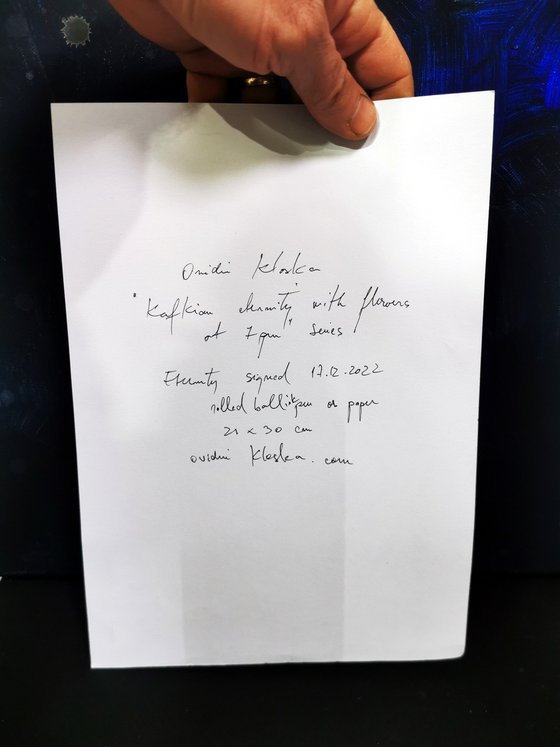 Ovidiu Kloska
"Kafkian eternity with flowers
at 7 pm" series
Eternity signed 17.12.2022
rolled ballinkpen on paper
21 x 30 cm
ovidiu Kloska.com